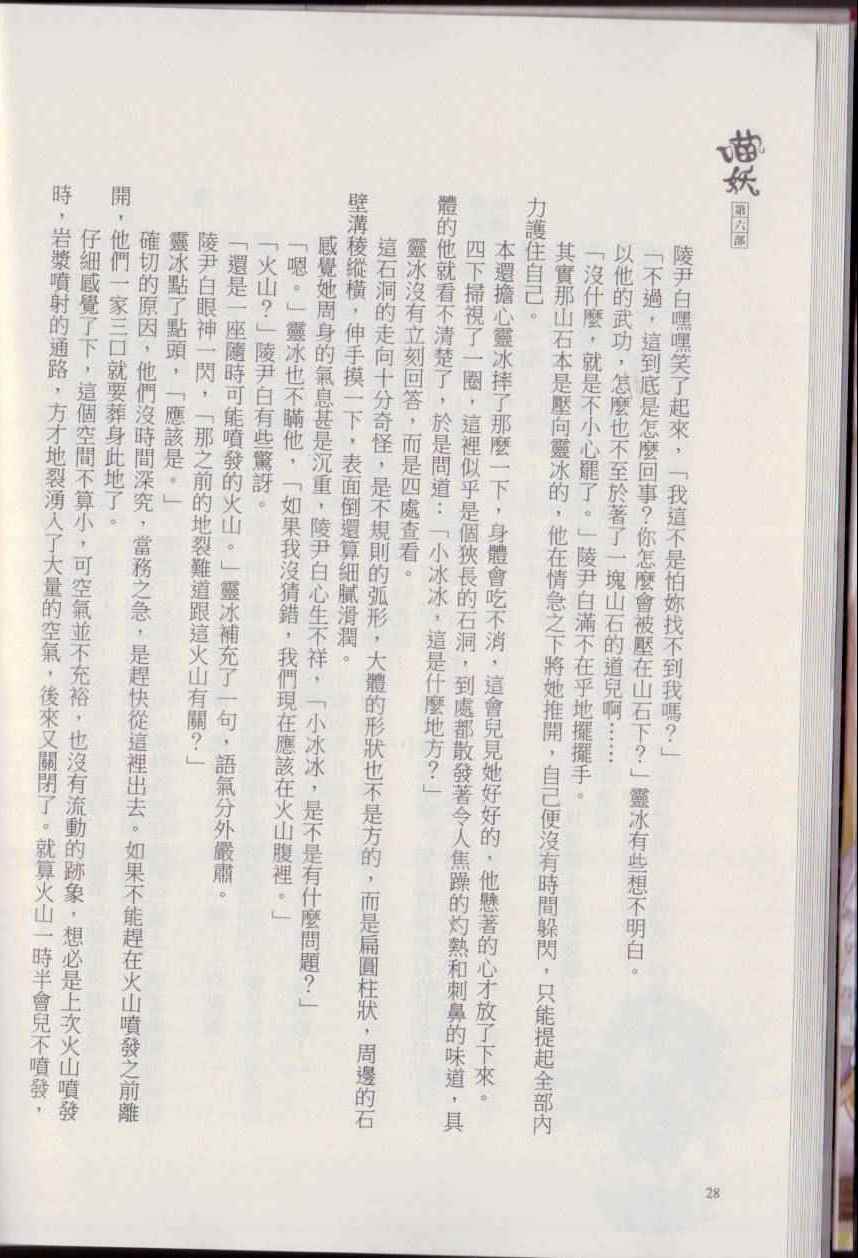 喵妖
第六部
陵尹白嘿嘿笑了起來，「我這不是怕妳找不到我嗎？」
「不過，這到底是怎麼回事？你怎麼會被壓在山石下？」靈冰有些想不明白。
以他的武功，怎麼也不至於著了一塊山石的道兒啊……
「沒什麼，就是不小心罷了。」陵尹白滿不在乎地擺擺手。
其實那山石本是壓向靈冰的，他在情急之下將她推開，自己便沒有時間躲閃，只能提起全部內
力護住自己。
本還擔心靈冰摔了那麼一下，身體會吃不消，這會兒見她好好的，他懸著的心才放了下來。
四下掃視了一圈，這裡似乎是個狹長的石洞，到處都散發著令人焦躁的灼熱和刺鼻的味道，具
體的他就看不清楚了，於是問道：「小冰冰，這是什麼地方？」
靈冰沒有立刻回答，而是四處查看。
這石洞的走向十分奇怪，是不規則的弧形，大體的形狀也不是方的，而是扁圓柱狀，周邊的石
壁溝稜縱橫，伸手摸一下，表面倒還算細膩滑潤。
感覺她周身的氣息甚是沉重，陵尹白心生不祥，「小冰冰，是不是有什麼問題？」
「嗯。」靈冰也不瞞他，「如果我沒猜錯，我們現在應該在火山腹裡。」
「火山？」陵尹白有些驚訝。
「還是一座隨時可能噴發的火山。」靈冰補充了一句，語氣分外嚴肅。
陵尹白眼神一閃，「那之前的地裂難道跟這火山有關？」
靈冰點了點頭，「應該是。」
確切的原因，他們沒時間深究，當務之急，是趕快從這裡出去。如果不能趕在火山噴發之前離
開，他們一家三口就要葬身此地了。
仔細感覺了下，這個空間不算小，可空氣並不充裕，也沒有流動的跡象，想必是上次火山噴發
時，岩漿噴射的通路，方才地裂湧入了大量的空氣，後來又關閉了。就算火山一時半會兒不噴發，
28